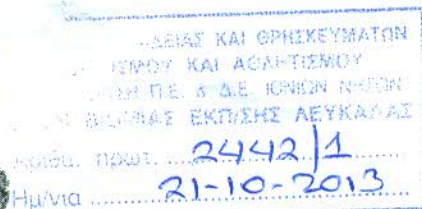 ΚΑΙ ΘΡΗΣΚΕΥΜΑΤΩΝ
ΚΑΙ ΑΘΛΗΤΙΣΜΟΥ
Π.Ε. & Δ.Ε. ΙΟΝΙΩΝ ΝΗΣΩΝ
ΕΚΠ/ΣΗΣ ΛΕΥΚΑΔΑΣ
Αριθμ. πρωτ. 2442/1
Ημ/νια 21-10-2013